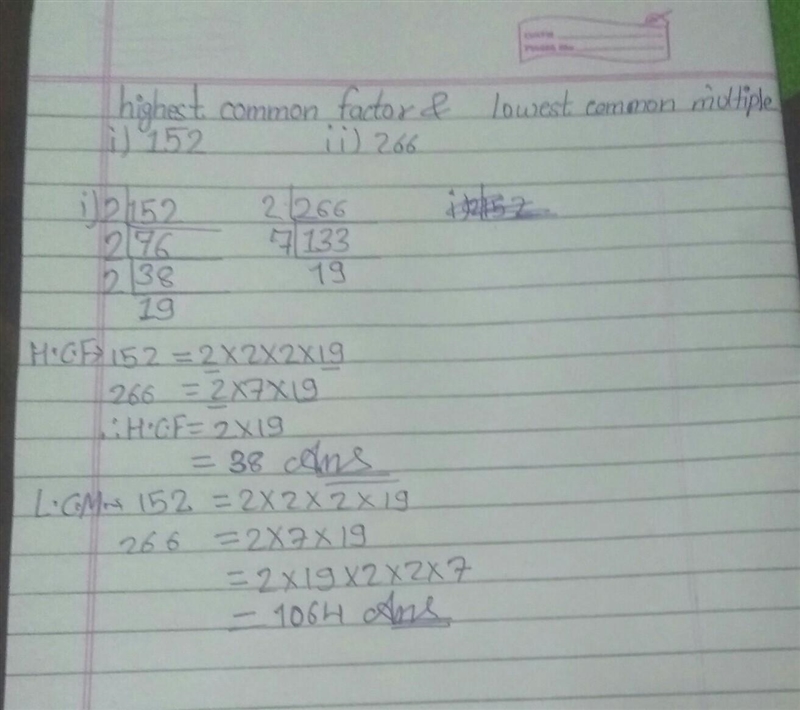 highest common factor & lowest common multiple
i) 152 ii) 266
i) 2 | 152 2 | 266
2 | 76 7 | 133
2 | 38 19
19
H.C.F→ 152 = 2×2×2×19
266 = 2×7×19
∴ H.C.F = 2×19
= 38 Ans
L.C.M→ 152 = 2×2×2×19
266 = 2×7×19
= 2×19×2×2×7
= 1064 Ans